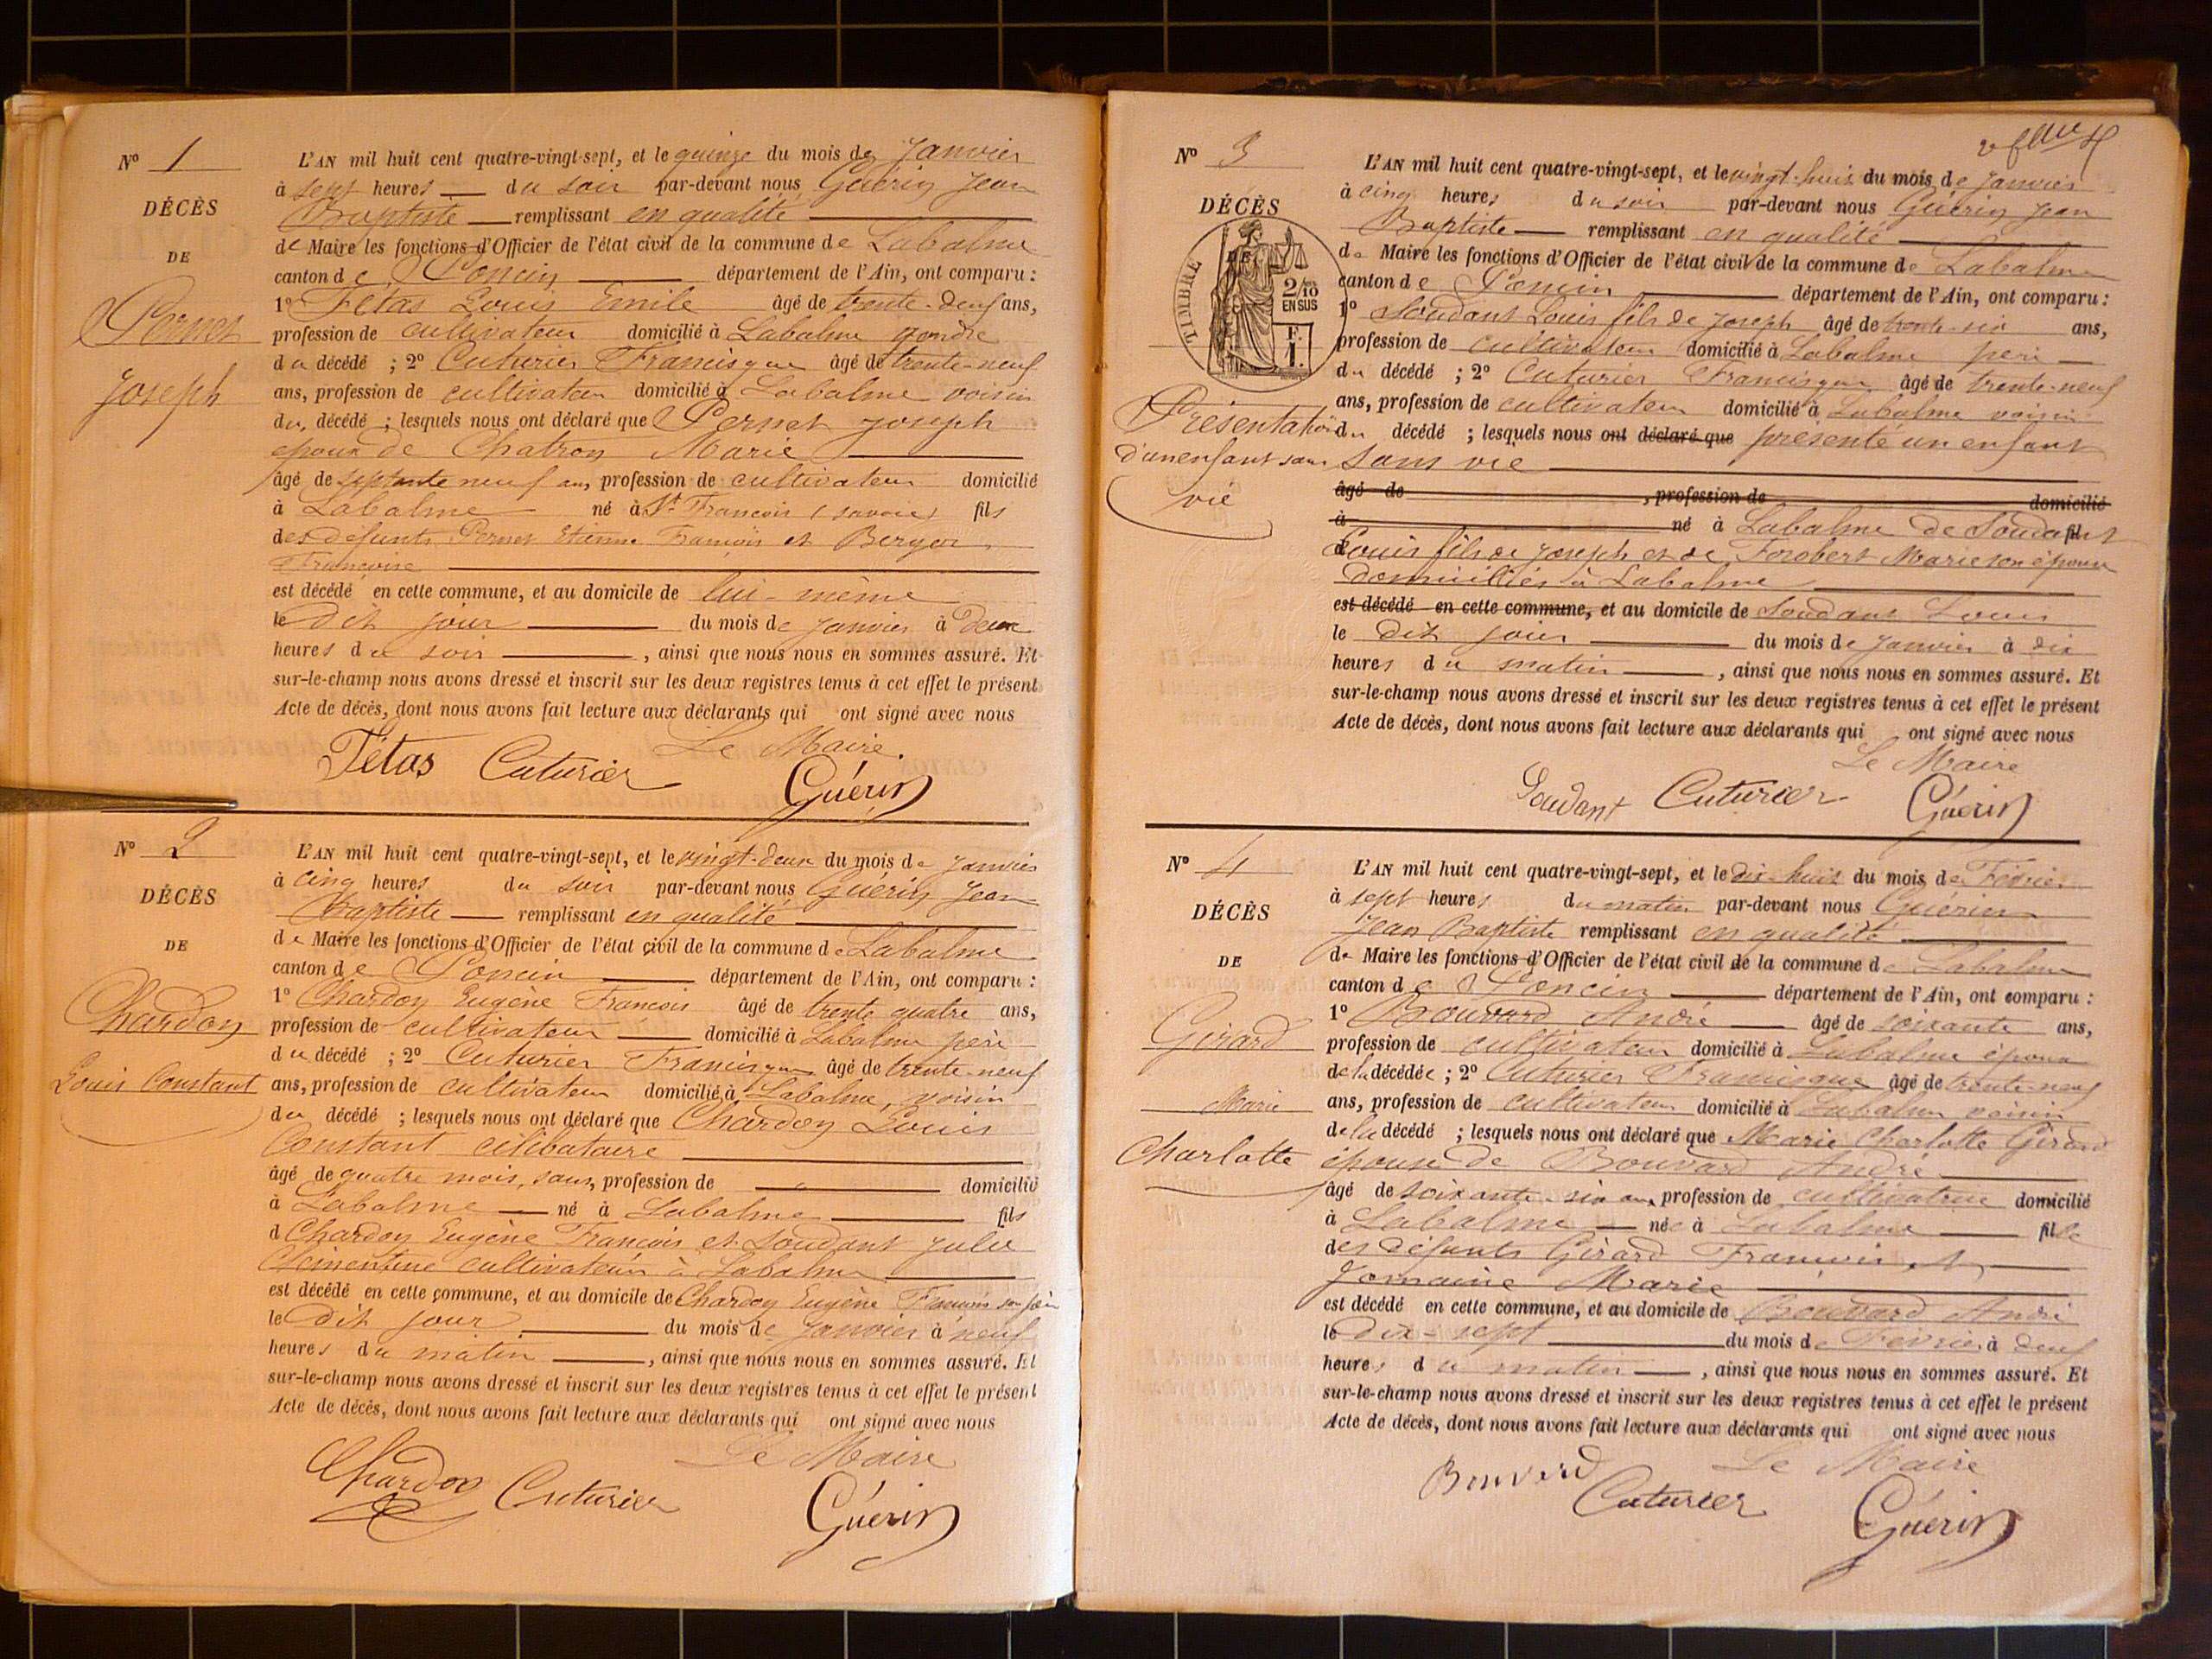 N° 1
DÉCÈS
DE
Pernet
Joseph
L'AN mil huit cent quatre-vingt-sept, et le quinze du mois de Janvier
à sept heures du soir par-devant nous Guérin Jean
Baptiste remplissant en qualité
de Maire les fonctions d'Officier de l'état civil de la commune de Labalme
canton de Poncin département de l'Ain, ont comparu :
1° Fétas Louis Emile âgé de trente-deux ans,
profession de cultivateur domicilié à Labalme gendre
du décédé ; 2° Cuturier Francisque âgé de trente-neuf
ans, profession de cultivateur domicilié à Labalme voisin
du décédé ; lesquels nous ont déclaré que Pernet Joseph
époux de Chatron Marie
âgé de septante neuf ans, profession de cultivateur domicilié
à Labalme né à St François (Savoie) fils
des défunts Pernet Etienne François et Berger
Françoise
est décédé en cette commune, et au domicile de lui-même
le dit jour du mois de Janvier à deux
heures du soir, ainsi que nous nous en sommes assuré. Et
sur-le-champ nous avons dressé et inscrit sur les deux registres tenus à cet effet le présent
Acte de décès, dont nous avons fait lecture aux déclarants qui ont signé avec nous
Le Maire
Fétas Cuturier Guérin
N° 2
DÉCÈS
DE
Chardon
Louis Constant
L'AN mil huit cent quatre-vingt-sept, et le vingt-deux du mois de Janvier
à cinq heures du soir par-devant nous Guérin Jean
Baptiste remplissant en qualité
de Maire les fonctions d'Officier de l'état civil de la commune de Labalme
canton de Poncin département de l'Ain, ont comparu :
1° Chardon Eugène François âgé de trente quatre ans,
profession de cultivateur domicilié à Labalme père
du décédé ; 2° Cuturier Francisque âgé de trente-neuf
ans, profession de cultivateur domicilié à Labalme, voisin
du décédé ; lesquels nous ont déclaré que Chardon Louis
Constant célibataire
âgé de quatre mois, sans profession de domicilié
à Labalme né à Labalme fils
d Chardon Eugène François et Soudant Julie
Clémentine cultivateurs à Labalme
est décédé en cette commune, et au domicile de Chardon Eugène François son père
le dit jour du mois de Janvier à neuf
heures du matin, ainsi que nous nous en sommes assuré. Et
sur-le-champ nous avons dressé et inscrit sur les deux registres tenus à cet effet le présent
Acte de décès, dont nous avons fait lecture aux déclarants qui ont signé avec nous
Le Maire
Chardon Cuturier Guérin
N° 3
DÉCÈS
DE
TIMBRE
2/10
EN SUS
F.
1.
Présentation
d'un enfant sans
vie
L'AN mil huit cent quatre-vingt-sept, et le vingt-huit du mois de Janvier
à cinq heures du soir par-devant nous Guérin Jean
Baptiste remplissant en qualité
de Maire les fonctions d'Officier de l'état civil de la commune de Labalme
canton de Poncin département de l'Ain, ont comparu :
1° Soudant Louis fils de Joseph âgé de trente-six ans,
profession de cultivateur domicilié à Labalme père
du décédé ; 2° Cuturier Francisque âgé de trente-neuf
ans, profession de cultivateur domicilié à Labalme voisin
du décédé ; lesquels nous ont déclaré que présenté un enfant
sans vie
âgé de , profession de domicilié
à né à Labalme de Soudant fil
d Louis fils de Joseph et de Forobert Marie son épouse
domiciliés à Labalme
est décédé en cette commune, et au domicile de Soudant Louis
le dit jour du mois de Janvier à dix
heures du matin, ainsi que nous nous en sommes assuré. Et
sur-le-champ nous avons dressé et inscrit sur les deux registres tenus à cet effet le présent
Acte de décès, dont nous avons fait lecture aux déclarants qui ont signé avec nous
Le Maire
Soudant Cuturier Guérin
N° 4
DÉCÈS
DE
Girard
Marie
Charlotte
L'AN mil huit cent quatre-vingt-sept, et le dix-huit du mois de Février
à sept heures du matin par-devant nous Guérin
Jean Baptiste remplissant en qualité
de Maire les fonctions d'Officier de l'état civil de la commune de Labalme
canton de Poncin département de l'Ain, ont comparu :
1° Bouvard André âgé de soixante ans,
profession de cultivateur domicilié à Labalme époux
de la décédée ; 2° Cuturier Francisque âgé de trente-neuf
ans, profession de cultivateur domicilié à Labalme voisin
de la décédé ; lesquels nous ont déclaré que Marie Charlotte Girard
épouse de Bouvard André
âgé de soixante-six ans, profession de cultivatrice domicilié
à Labalme née à Labalme fille
des défunts Girard François et
Jomaine Marie
est décédé en cette commune, et au domicile de Bouvard André
le dix-sept du mois de Février à deux
heures du matin, ainsi que nous nous en sommes assuré. Et
sur-le-champ nous avons dressé et inscrit sur les deux registres tenus à cet effet le présent
Acte de décès, dont nous avons fait lecture aux déclarants qui ont signé avec nous
Le Maire
Bouvard Cuturier Guérin